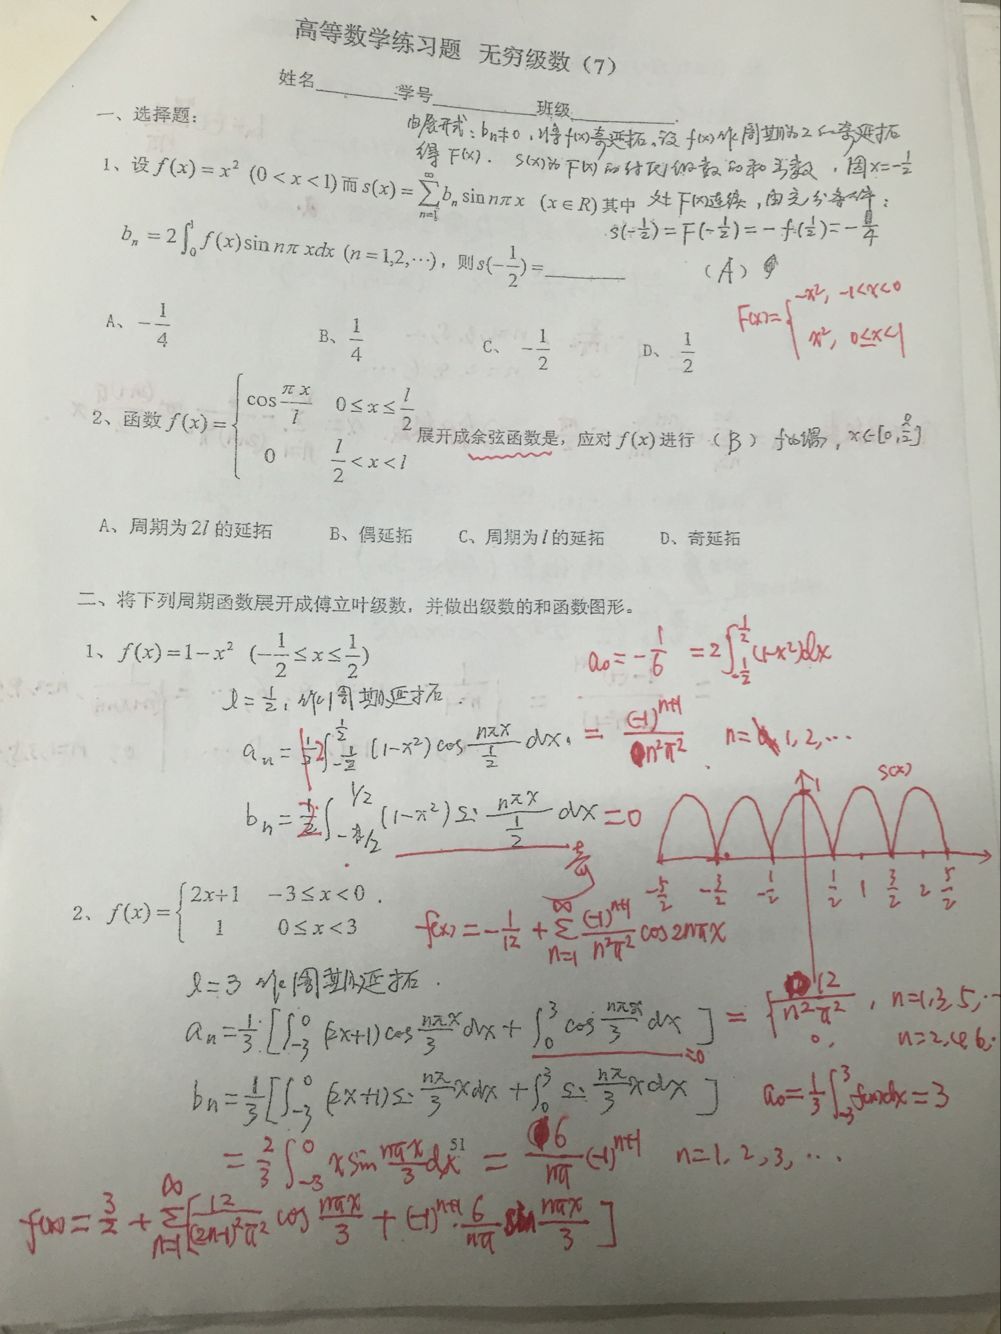 高等数学练习题 无穷级数（7）
姓名________学号________班级________
一、选择题：
由展开式：bₙ≠0，将f(x)奇延拓，设f(x)作周期为2的奇延拓
得F(x)．S(x)为F(x)的付氏级数的和函数，因x=-1/2
处F(x)连续，由充分条件：
S(-1/2)=F(-1/2)=-f(1/2)=-1/4
1、设 f(x)=x² (0<x<1)而 s(x)=∑_{n=1}^{∞} bₙ sin nπx (x∈R)其中
bₙ=2∫₀¹ f(x) sin nπ xdx (n=1,2,⋯)，则 s(-1/2)=________ （A）
A、-1/4 B、1/4 C、-1/2 D、1/2
F(x)={-x², -1<x<0
x², 0≤x<1
2、函数 f(x)={cos πx/l 0≤x≤l/2
0 l/2<x<l
展开成余弦函数是，应对 f(x)进行（B）
A、周期为2l的延拓 B、偶延拓 C、周期为l的延拓 D、奇延拓
二、将下列周期函数展开成傅立叶级数，并做出级数的和函数图形。
1、f(x)=1-x² (-1/2≤x≤1/2)
a₀=-1/6 =2∫_{-1/2}^{1/2}(1-x²)dx
l=1/2，作周期延拓．
aₙ=2∫_{-1/2}^{1/2}(1-x²)cos nπx/(1/2) dx. = (-1)^{n+1}/(n²π²) n=1,2,⋯
bₙ=∫_{-1/2}^{1/2}(1-x²)sin nπx/(1/2) dx=0
奇
S(x)
1
-5/2 -3/2 -1/2 1/2 1 3/2 2 5/2
2、f(x)={2x+1 -3≤x<0
1 0≤x<3 .
f(x)=-1/12+∑_{n=1}^{∞} (-1)^{n+1}/(n²π²) cos2nπx
l=3 作周期延拓．
aₙ=1/3[∫_{-3}^{0}(2x+1)cos nπx/3 dx+∫₀³ cos nπx/3 dx] = {12/(n²π²), n=1,3,5,⋯
=0
0, n=2,4,6⋯
bₙ=1/3[∫_{-3}^{0}(2x+1)sin nπ/3 xdx+∫₀³ sin nπ/3 xdx] a₀=1/3∫_{-3}^{3}f(x)dx=3
=2/3∫_{-3}^{0} x sin nπx/3 dx = 6/(nπ) (-1)^{n+1} n=1,2,3,⋯
51
f(x)=3/2+∑_{n=1}^{∞}[12/((2n-1)²π²) cos nπx/3+(-1)^{n+1}·6/(nπ) sin nπx/3]